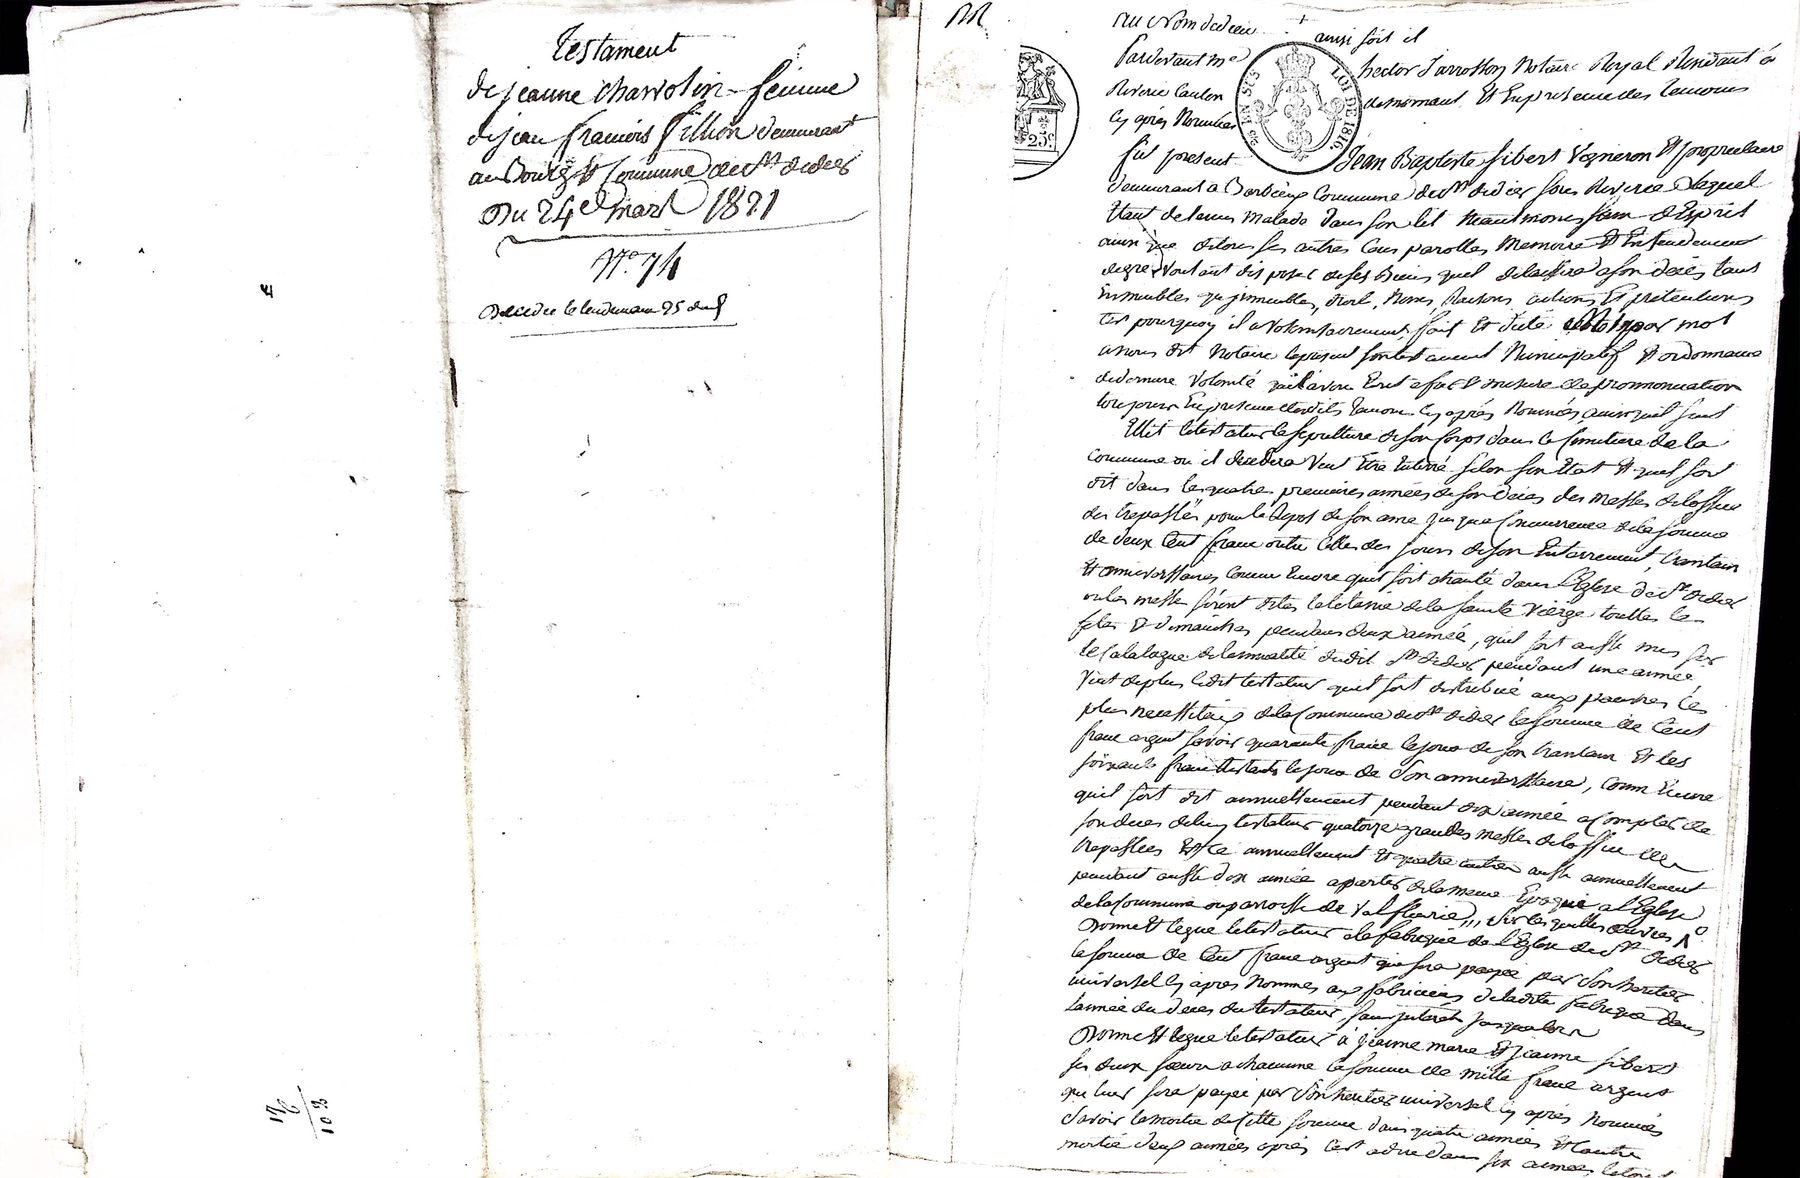 Testament
de jeanne charvolin femme
de jean francois fillion demeurant
au Bourg & Commune de St didier
Du 24e mars 1821
N.o 74
Décédée le lendemain 25 dud
17
6
103
au Nom de dieu ainsi soit il
Pardevant Me hector Jarrosson Notaire Royal Résidant à
Riverie Canton de mornant Et En présence des Temoins
cy après Nommés
25c
25 EN SUS LOI DE 1816
fut présent Jean Baptiste fibert Vigneron & propriétaire
demeurant a Commune de St didier sous Riverie Lequel
Etant detenu malade dans son lit Neantmoins sain d'Esprit
ainsi que de tous ses autres sens parolles Memoire & Entendement
de gré Voulant disposer de ses Biens quil delaissera a son décès tant
meubles qu'immeubles, droit, Noms Raisons actions Et prétentions
C'est pourquoy il a volontairement fait Et dicté mot par mot
a nous dit Notaire le présent son testament Nuncupatif & ordonnance
de dernière Volonté quil avons Ecrit a fur & mesure de prononciation
toujours En présence desdits temoins cy après Nommés, ainsi quil suit
Elit le testateur la sépulture de son Corps dans le simetiere de la
Commune ou il décèdera Veut Etre Enterré selon son Etat & quil soit
dit dans les quatre premieres années de son décès des messes de l'office
des trepassés pour le Repos de son ame jusqua Concurrence de la somme
de deux Cent franc outre Celles des jours de son Enterrement, trantain
Et anniversaires Comme Encore quil soit chanté dans L'Eglise de St didier
ou les messe seront dites la letanie de la sainte Vierge touttes les
fetes & dimanches pendant deux année, quil soit aussi mis sur
le Catalogue de la dudit St didier pendant une année,
Veut de plus ledit testateur quil soit distribué aux pauvres les
plus necessiteux de la Commune de St didier la somme de Cent
franc argent savoir quarante franc le jour de son trantain Et les
soixante franc Restants le jour de son anniversaire, Comm Encore
quil soit dit annuellement pendant dix année a Compter de
son deces de luy testateur quatorze grandes messes de l'office des
trepassées Et ce annuellement Et quatre autres aussi annuellement
pendant aussi dix année a partir de la meme Epoque a l'Eglise
de la Commune ou parroisse de Valfleurie,,, sur les quelles
Donne Et legue le testateur a la fabrique de l'Eglise de St didier
la somme de Cent franc argent qui sera payée par son heritier
universel cy après Nommés aux fabriciens de ladite fabrique dans
l'année du deces du testateur, sans interêt jusqualors
Donne Et legue le testateur à jeanne marie Et jeanne fibert
ses deux soeurs a chacune la somme de mille franc argent
qui leur sera payée par son heritier universel cy après Nommés
Savoir la moitié de Cette somme dans quatre années Et l'autre
moitié deux années après C'est adire dans six années le tout